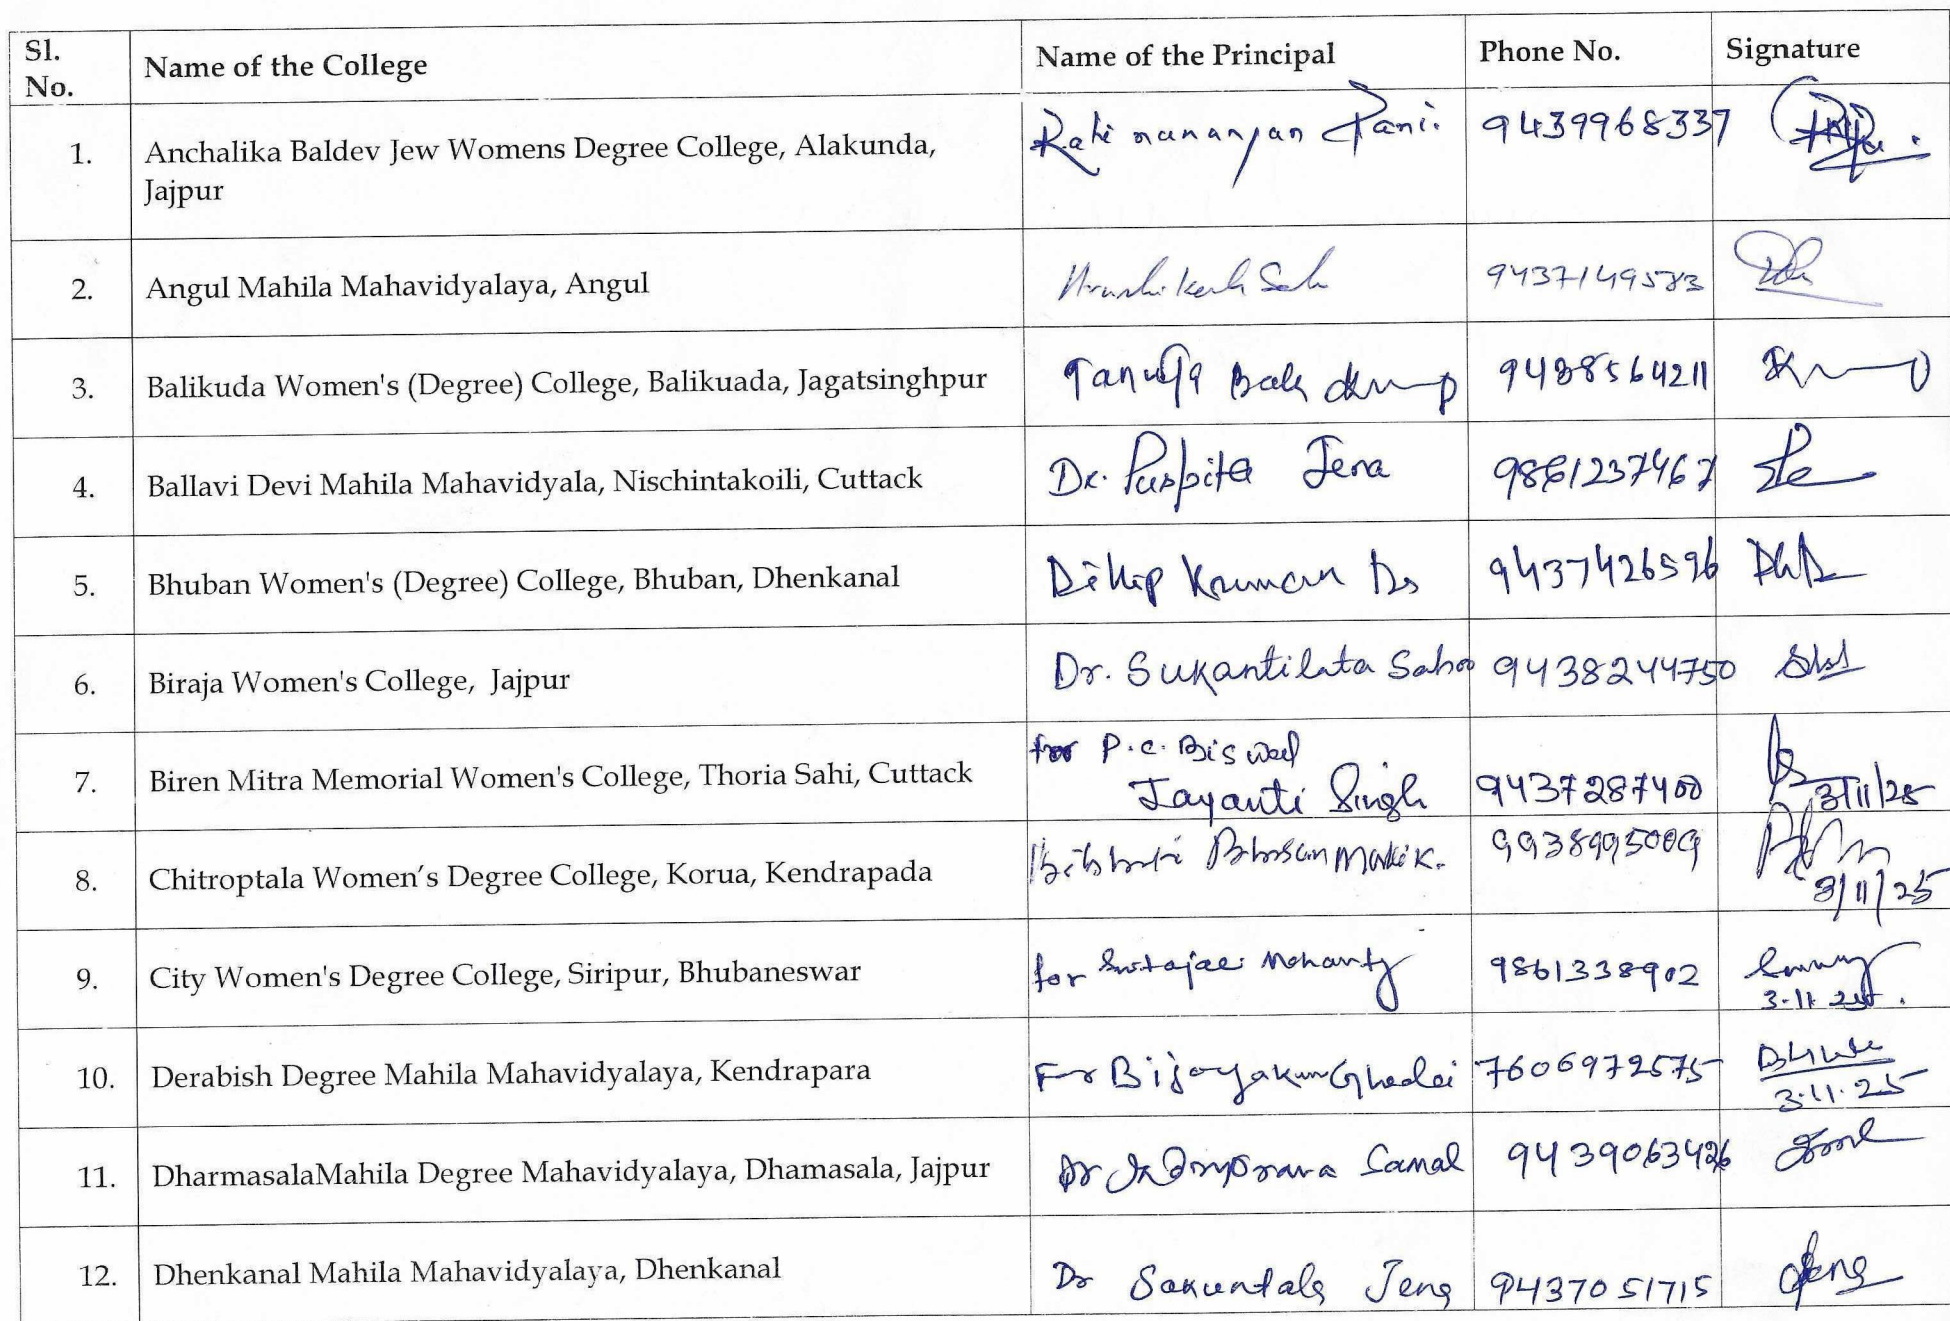 Sl. No. Name of the College Name of the Principal Phone No. Signature
1. Anchalika Baldev Jew Womens Degree College, Alakunda, 9439968337
Jajpur
2. Angul Mahila Mahavidyalaya, Angul 9437149583
3. Balikuda Women's (Degree) College, Balikuada, Jagatsinghpur 9438564211
4. Ballavi Devi Mahila Mahavidyala, Nischintakoili, Cuttack Dr. Puspita Jena 9861237467
5. Bhuban Women's (Degree) College, Bhuban, Dhenkanal Dilip Kumar Das 9437426596
6. Biraja Women's College, Jajpur Dr. Sukantilata Sahoo 9438244750
for P.C. Biswal
7. Biren Mitra Memorial Women's College, Thoria Sahi, Cuttack Jayanti Singh 9437287400 3/11/25
8. Chitroptala Women’s Degree College, Korua, Kendrapada Bibhuti Bhusan Mallik. 9938995009 3/11/25
9. City Women's Degree College, Siripur, Bhubaneswar for Mohanty 9861338902
3.11.25.
10. Derabish Degree Mahila Mahavidyalaya, Kendrapara For Bijoyakumar Ghadei 7606972575
3.11.25
11. DharmasalaMahila Degree Mahavidyalaya, Dhamasala, Jajpur Dr Samal 9439063426
12. Dhenkanal Mahila Mahavidyalaya, Dhenkanal Dr Sakuntala Jena 9437051715 Jena